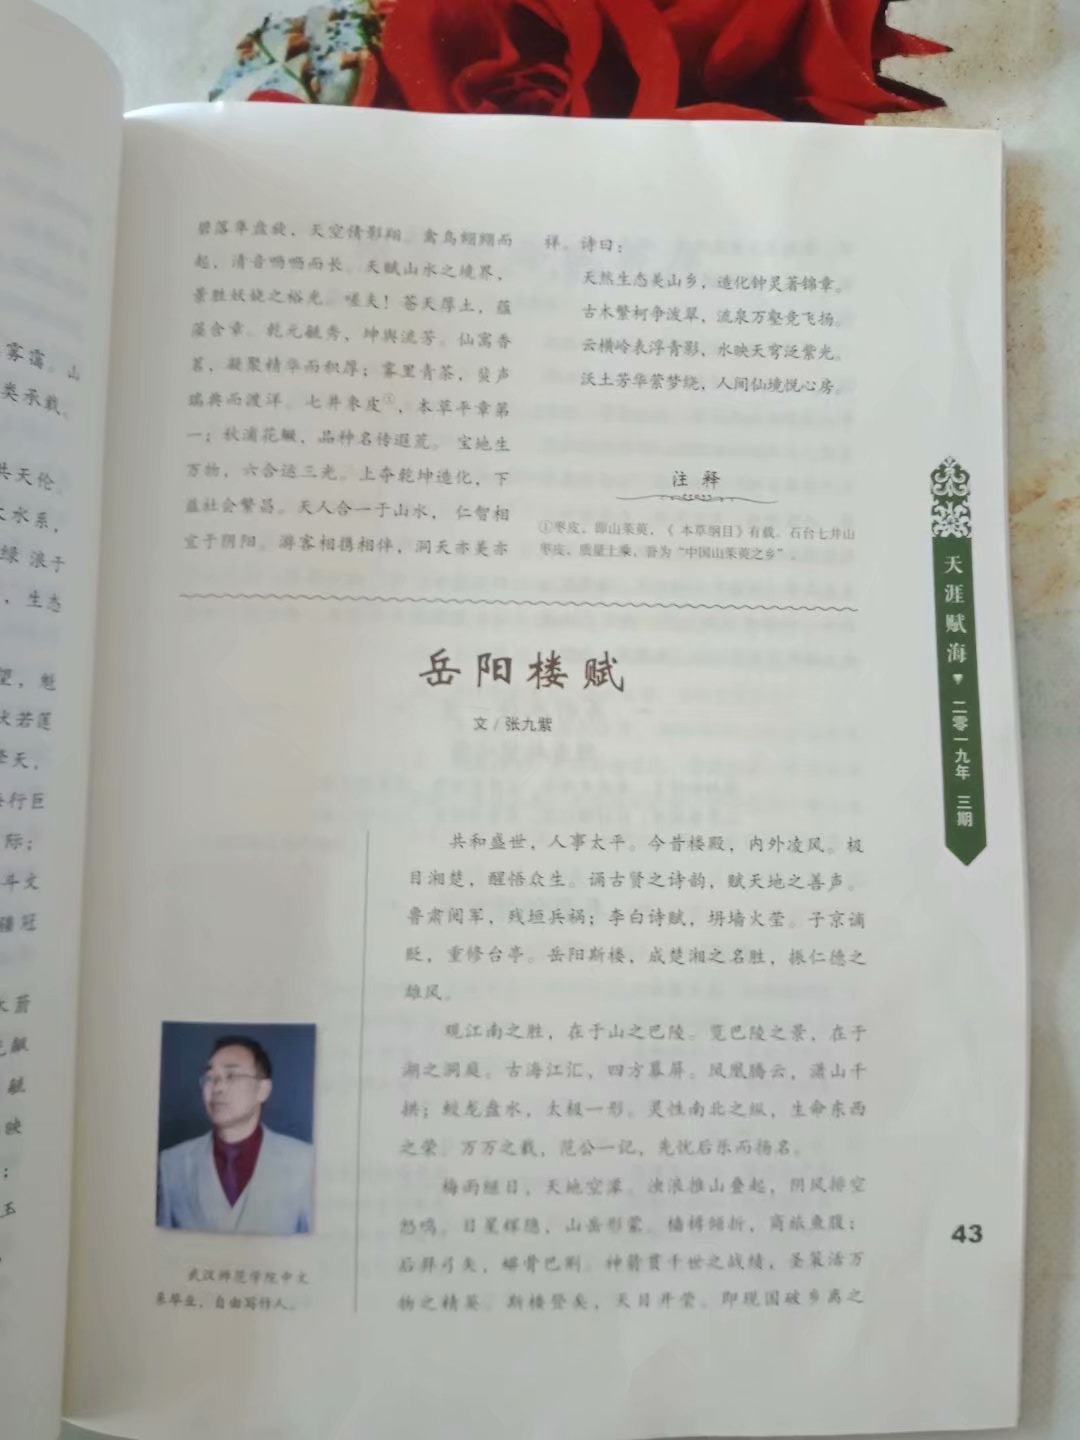 雾霭。山
类承载。
共天伦。
水系，
绿浪于
，生态
望，魁
状若莲
擎天，
行巨
际；
斗文
疆冠
映
；
玉
碧落隼盘旋，天空倩影翔。禽鸟翩翩而
起，清音呖呖而长。天赋山水之境界，
景胜妖娆之裕光。嗟夫！苍天厚土，蕴
藻含章。乾元毓秀，坤舆流芳。仙寓香
茗，凝聚精华而积厚；雾里青茶，蜚声
瑞典而渡洋。七井枣皮①，本草平章第
一；秋浦花鳜，品种名传遐荒。宝地生
万物，六合运三光。上夺乾坤造化，下
益社会繁昌。天人合一于山水，仁智相
宜于阴阳。游客相携相伴，洞天亦美亦
祥。诗曰：
天然生态美山乡，造化钟灵著锦章。
古木繁柯争泼翠，流泉万壑竞飞扬。
云横岭表浮青影，水映天穹泛紫光。
沃土芳华萦梦绕，人间仙境悦心房。
注释
①枣皮，即山茱萸，《本草纲目》有载。石台七井山
枣皮，质量上乘，誉为“中国山茱萸之乡”。
岳阳楼赋
文/张九紫
共和盛世，人事太平。今昔楼殿，内外凌风。极
目湘楚，醒悟众生。诵古贤之诗韵，赋天地之善声。
鲁肃阅军，残垣兵祸；李白诗赋，坍墙火莹。子京谪
贬，重修台亭。岳阳斯楼，成楚湘之名胜，振仁德之
雄风。
观江南之胜，在于山之巴陵。览巴陵之景，在于
湖之洞庭。古海江汇，四方幕屏。凤凰腾云，潇山千
拱；蛟龙盘水，太极一形。灵性南北之纵，生命东西
之荣。万万之载，范公一记，先忧后乐而扬名。
梅雨继日，天地空濛。浊浪推山叠起，阴风排空
怒鸣。日星辉隐，山岳形蒙。樯楫倾折，商旅鱼腹；
后羿弓矢，蟒骨巴割。神箭贯千世之战绩，圣策活万
物之精英。斯楼登矣，天目开莹。即现国破乡离之
武汉师范学院中文
系毕业，自由写作人。
天涯赋海
二零一九年 三期
43